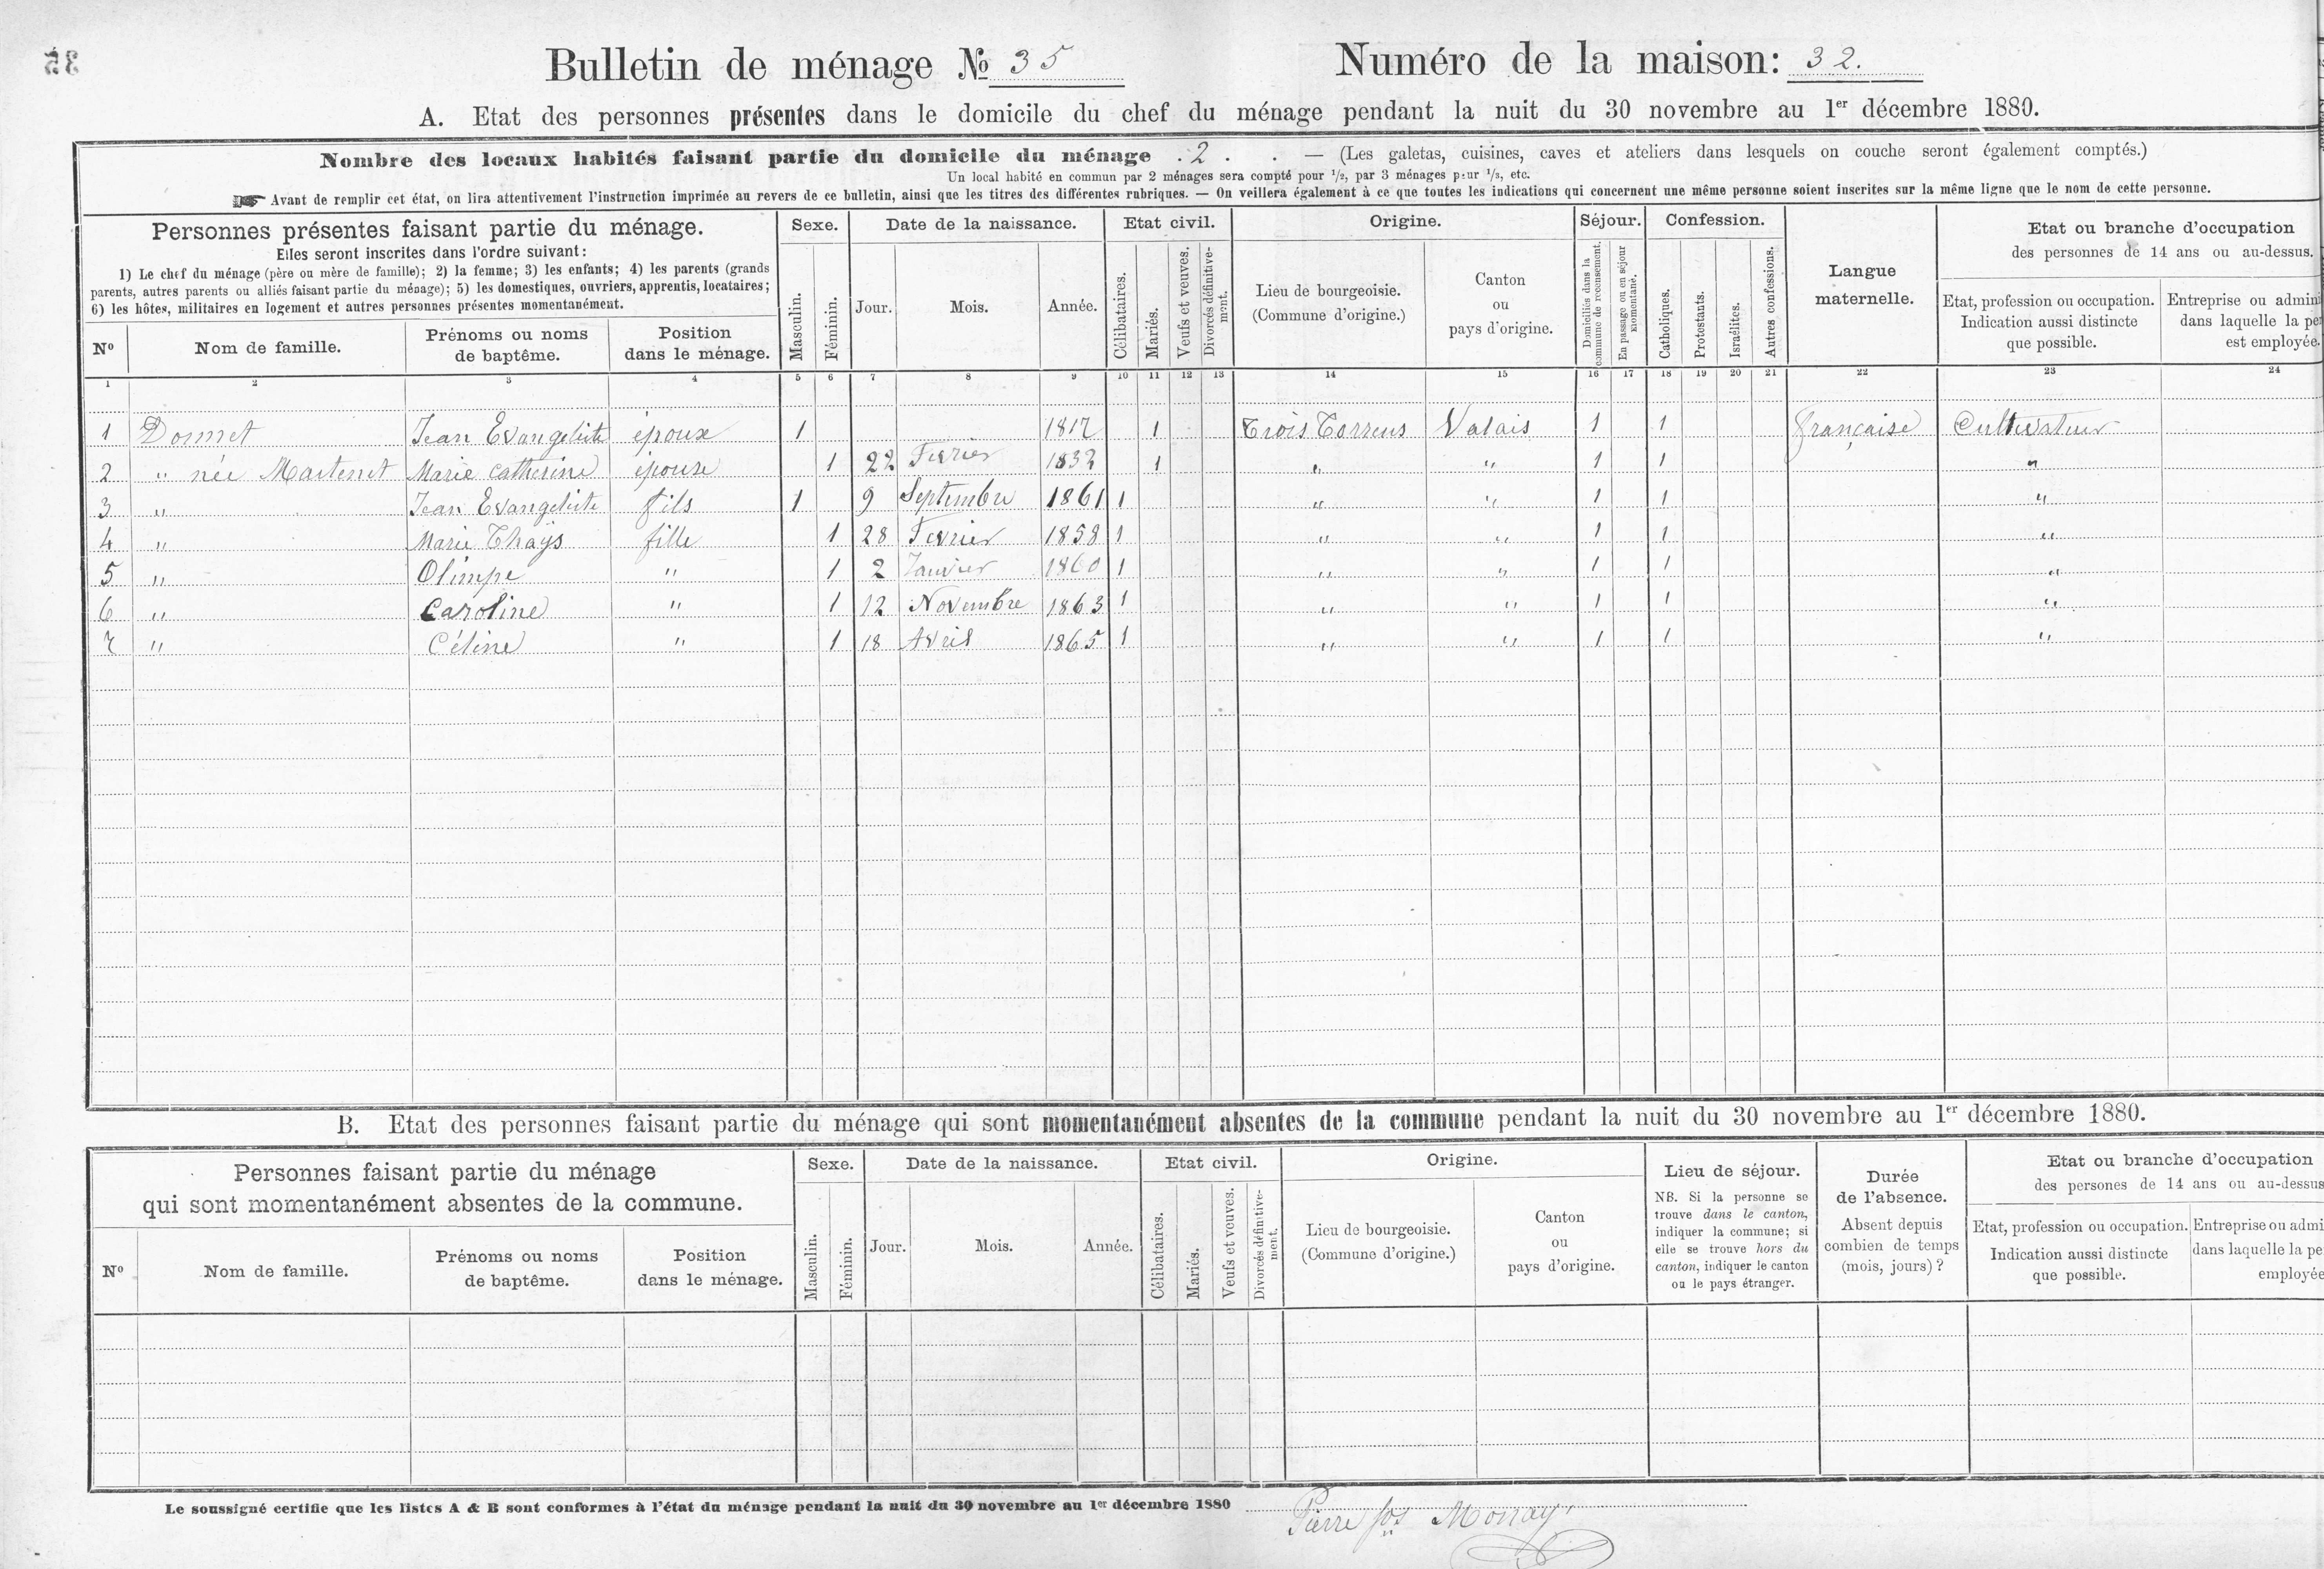 35
Bulletin de ménage № 35
Numéro de la maison: 32.
A. Etat des personnes présentes dans le domicile du chef du ménage pendant la nuit du 30 novembre au 1er décembre 1880.
Nombre des locaux habités faisant partie du domicile du ménage . 2 . . — (Les galetas, cuisines, caves et ateliers dans lesquels on couche seront également comptés.)
Un local habité en commun par 2 ménages sera compté pour 1/2, par 3 ménages pour 1/3, etc.
Avant de remplir cet état, on lira attentivement l'instruction imprimée au revers de ce bulletin, ainsi que les titres des différentes rubriques. — On veillera également à ce que toutes les indications qui concernent une même personne soient inscrites sur la même ligne que le nom de cette personne.
Personnes présentes faisant partie du ménage.
Elles seront inscrites dans l'ordre suivant:
1) Le chef du ménage (père ou mère de famille); 2) la femme; 3) les enfants; 4) les parents (grands
parents, autres parents ou alliés faisant partie du ménage); 5) les domestiques, ouvriers, apprentis, locataires;
6) les hôtes, militaires en logement et autres personnes présentes momentanément.
Nº
Nom de famille.
Prénoms ou noms
de baptême.
Position
dans le ménage.
Sexe.
Masculin.
Féminin.
Date de la naissance.
Jour.
Mois.
Année.
Etat civil.
Célibataires.
Mariés.
Veufs et veuves.
Divorcés définitive-
ment.
Origine.
Lieu de bourgeoisie.
(Commune d'origine.)
Canton
ou
pays d'origine.
Séjour.
Domiciliés dans la
commune de recensement.
En passage ou en séjour
momentané.
Confession.
Catholiques.
Protestants.
Israélites.
Autres confessions.
Langue
maternelle.
Etat ou branche d'occupation
des personnes de 14 ans ou au-dessus.
Etat, profession ou occupation.
Indication aussi distincte
que possible.
Entreprise ou admini
dans laquelle la pe
est employée.
1 2 3 4 5 6 7 8 9 10 11 12 13 14 15 16 17 18 19 20 21 22 23 24
1 Donnet Jean Evangeliste époux 1 1817 1 Trois Torrens Valais 1 1 française Cultivateur
2 " née Martenet Marie catherine épouse 1 22 Fevrier 1832 1 " " 1 1 "
3 " Jean Evangeliste fils 1 9 Septembre 1861 1 " " 1 1 "
4 " Marie Thaÿs fille 1 28 Fevrier 1858 1 " " 1 1 "
5 " Olimpe " 1 2 Janvier 1860 1 " " 1 1 "
6 " Caroline " 1 12 Novembre 1863 1 " " 1 1 "
7 " Céline " 1 18 Avril 1865 1 " " 1 1 "
B. Etat des personnes faisant partie du ménage qui sont momentanément absentes de la commune pendant la nuit du 30 novembre au 1er décembre 1880.
Personnes faisant partie du ménage
qui sont momentanément absentes de la commune.
Nº
Nom de famille.
Prénoms ou noms
de baptême.
Position
dans le ménage.
Sexe.
Masculin.
Féminin.
Date de la naissance.
Jour.
Mois.
Année.
Etat civil.
Célibataires.
Mariés.
Veufs et veuves.
Divorcés définitive-
ment.
Origine.
Lieu de bourgeoisie.
(Commune d'origine.)
Canton
ou
pays d'origine.
Lieu de séjour.
NB. Si la personne se
trouve dans le canton,
indiquer la commune; si
elle se trouve hors du
canton, indiquer le canton
ou le pays étranger.
Durée
de l'absence.
Absent depuis
combien de temps
(mois, jours)?
Etat ou branche d'occupation
des persones de 14 ans ou au-dessus
Etat, profession ou occupation.
Indication aussi distincte
que possible.
Entreprise ou admi
dans laquelle la pe
employée
Le soussigné certifie que les listes A & B sont conformes à l'état du ménage pendant la nuit du 30 novembre au 1er décembre 1880
Pierre Jos Monay